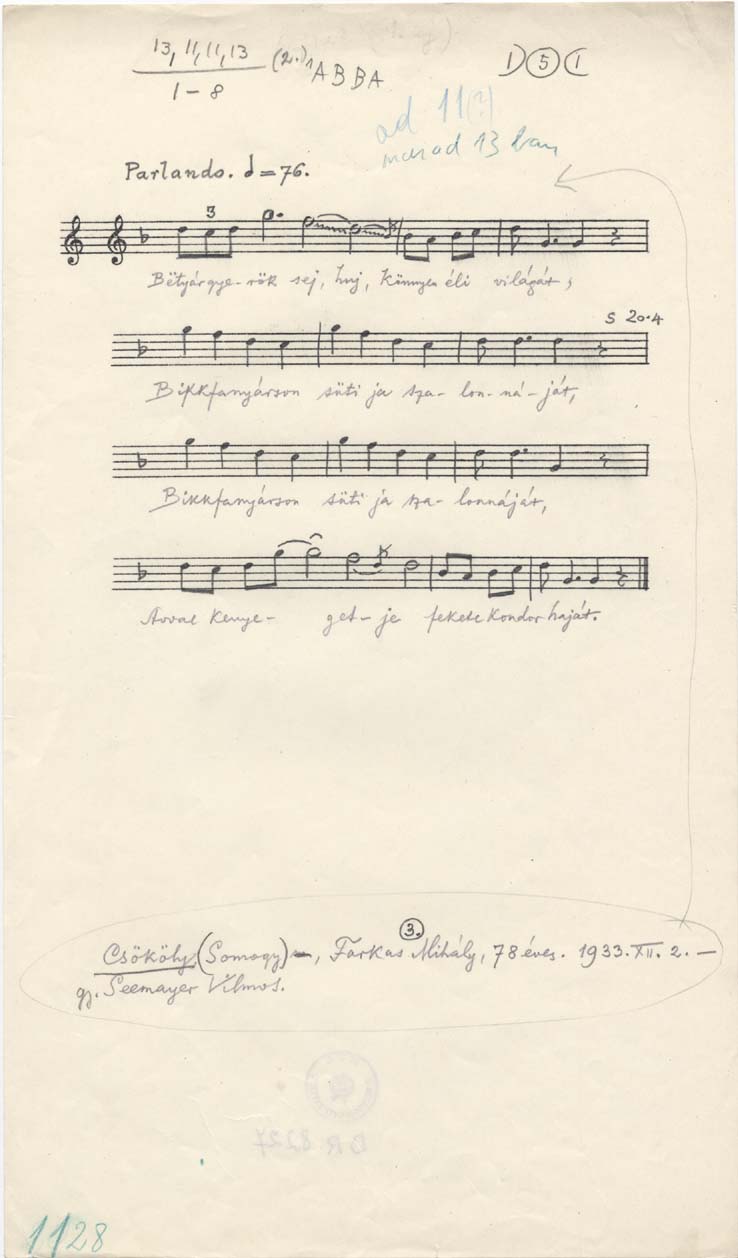 13, 11, 11, 13 (2.) ABBA
1 – 8
1) 5 (1
ad 11(?)
marad 13 ban
Parlando. = 76.
3
Bëtyárgye-rök sej, huj, Könnyen éli világát,
S 20.4
Bikkfanyárson süti ja sza-lon-ná-ját,
Bikkfanyárson süti ja sza-lonnáját,
Avval kenye-get-je fekete kondor haját.
3.
Csököly (Somogy), Farkas Mihály, 78 éves. 1933. XII. 2. –
gy. Seemayer Vilmos.
BR 8227
1128